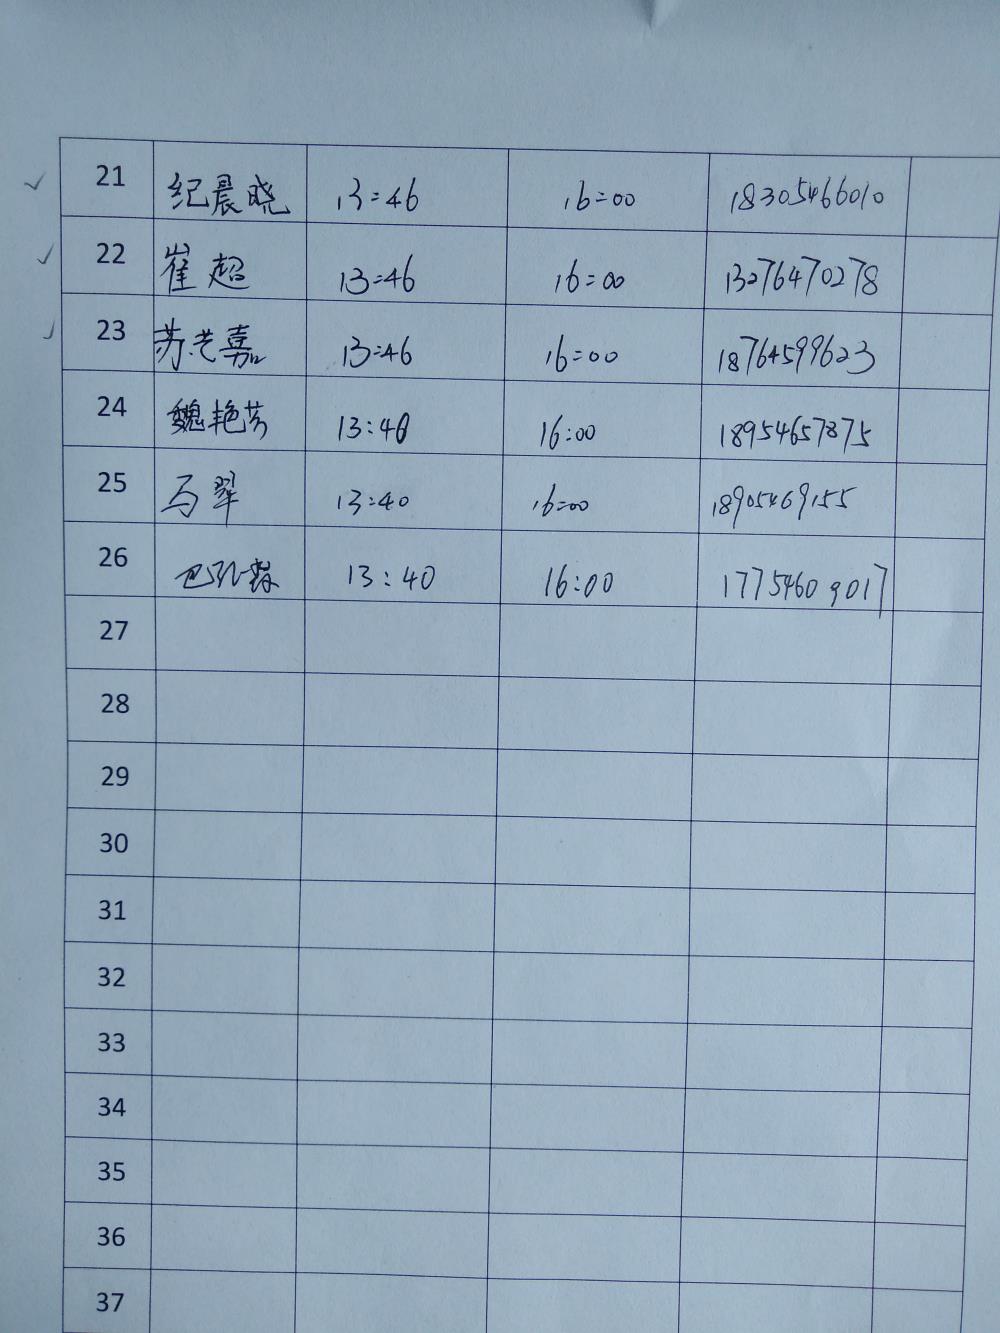 21 纪晨晓 13:46 16:00 18305466010
22 崔超 13:46 16:00 13276470278
23 苏艺嘉 13:46 16:00 18764599623
24 魏艳芳 13:40 16:00 18954657875
25 马翠 13:40 16:00 18905469155
26 13:40 16:00 17754609017
27
28
29
30
31
32
33
34
35
36
37